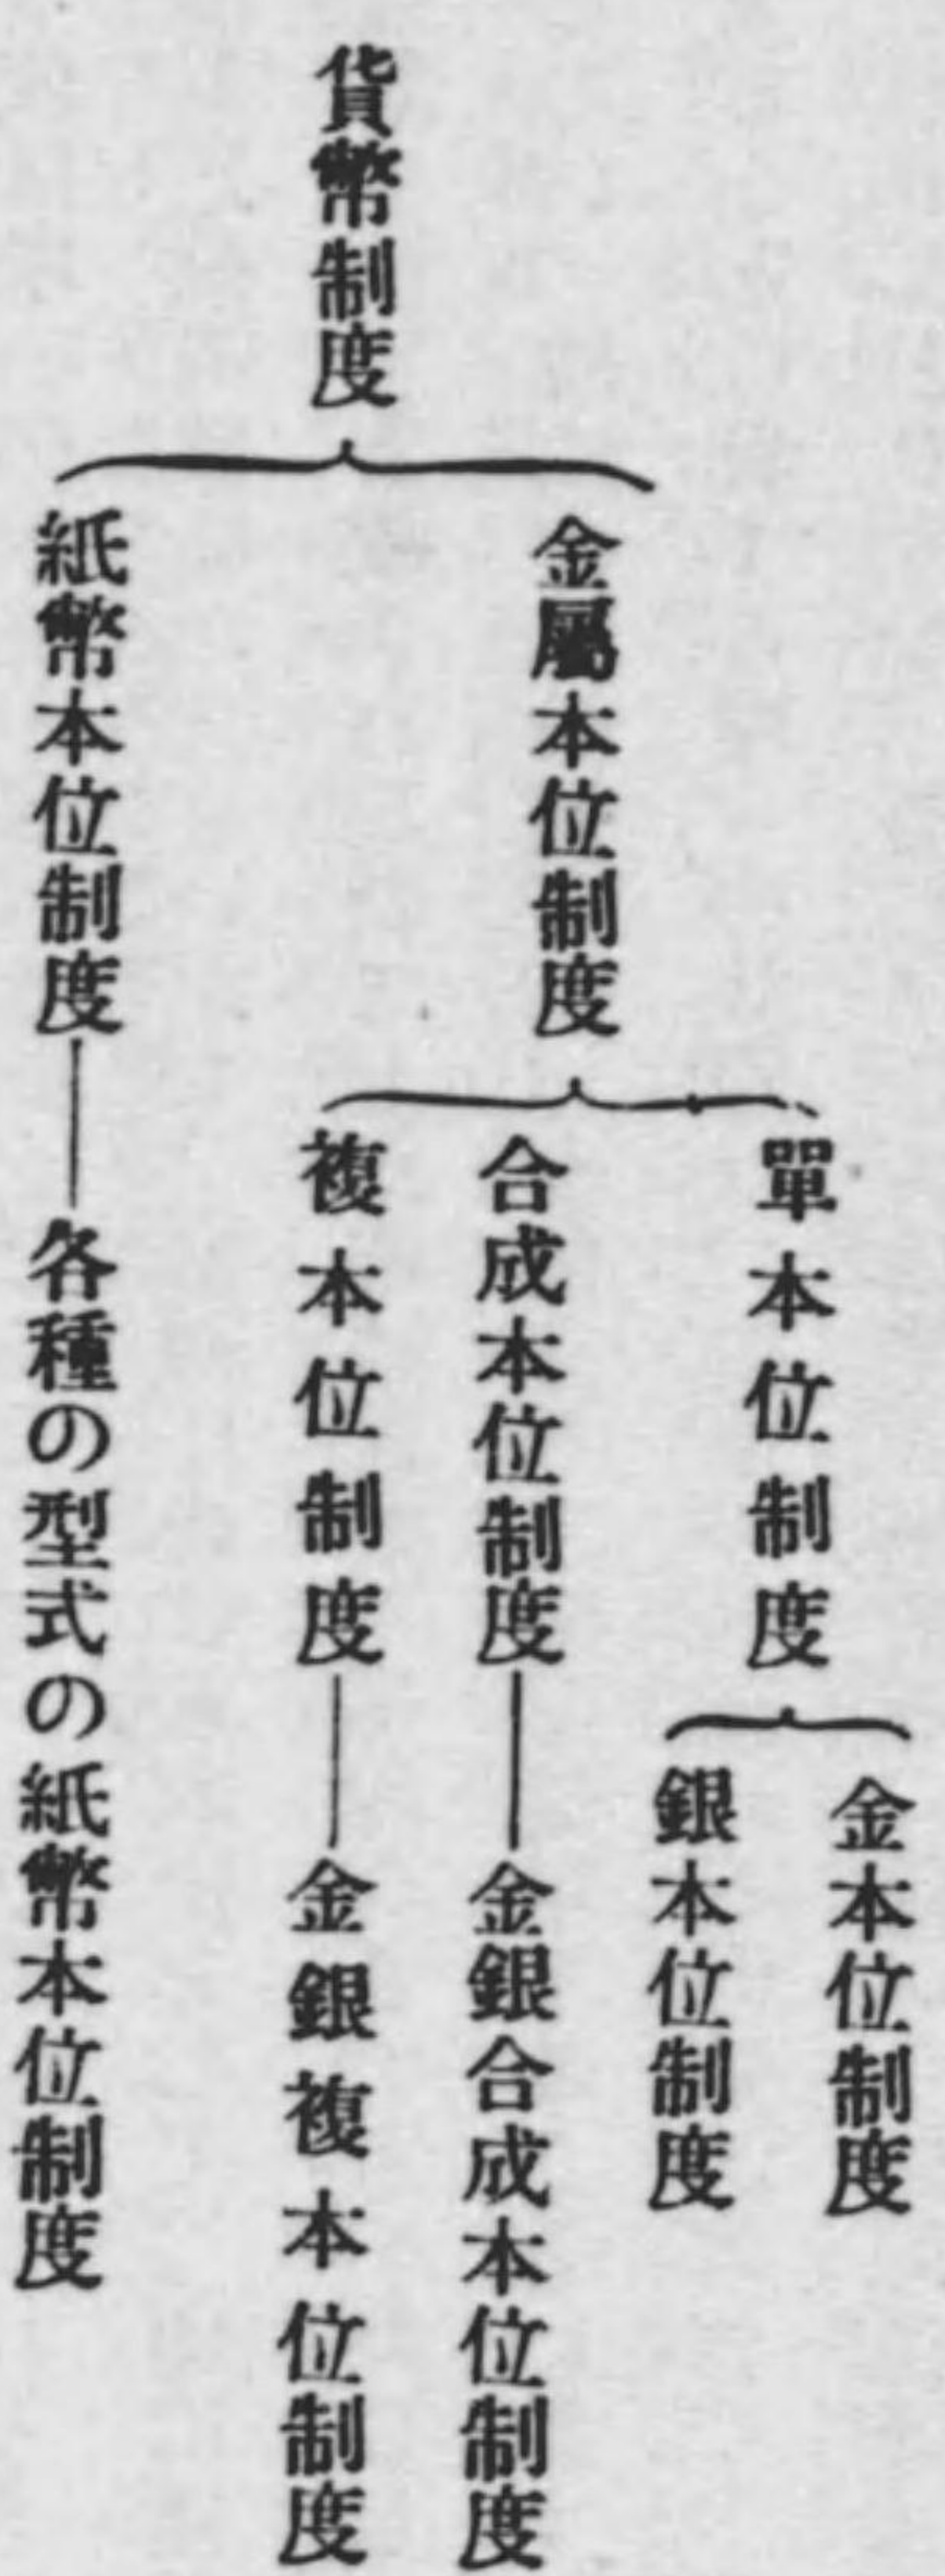 貨幣制度
金屬本位制度
單本位制度
金本位制度
銀本位制度
合成本位制度―金銀合成本位制度
複本位制度―金銀複本位制度
紙幣本位制度―各種の型式の紙幣本位制度